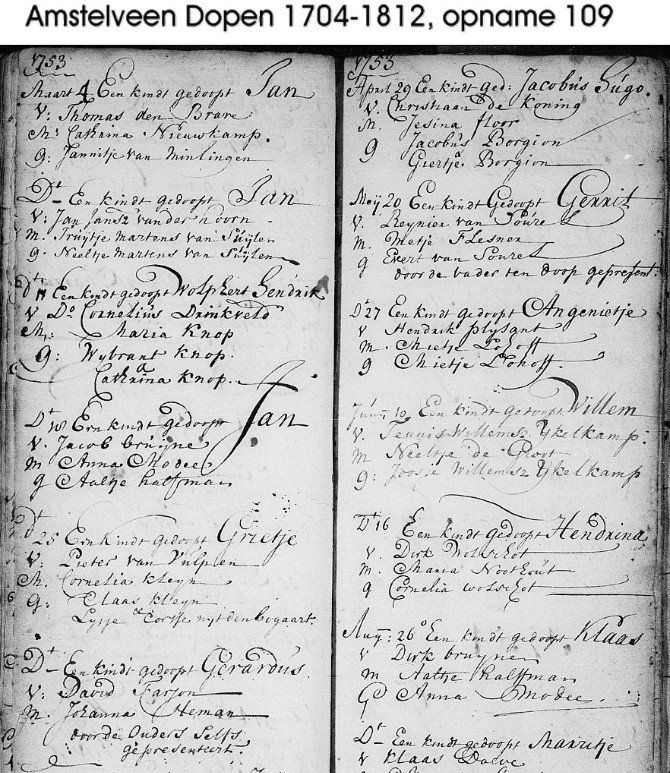 Amstelveen Dopen 1704-1812, opname 109
1753
Maart 4 Een kindt gedoopt Jan
V: Thomas den Brave
M: Cathrina Nieuwkamp.
g: Jannitje van Minlingen
Dt Een kindt gedoopt Jan
V: Jan Jansz vander hoorn
m. Truijtje Martens van Suijlen
g: Neeltje Martens van Suijlen
Een kindt gedoopt Wolphert Hendrik
V Do Cornelius Drinkveld
M: Maria Knop
g: Wybrant Knop
Cathrina Knop.
Dt 18 Een kindt gedoopt Jan
V. Jacob bruijne
m Anna Modee
g Aaltje halfman
Dt 25 Een kindt gedoopt Grietje
V: Pieter van Vulpen
M. Cornelia Kleyn
g: Claas Kleyn
uijtdenbogaart.
Dt Een kindt gedoopt Gerardus.
V: David Farjon
M. Johanna Heman
door de Ouders Selfs
gepresenteert.
1753
April 29 Een kindt ged: Jacobus Hugo.
V. Christiaan de Koning
M. Jesina floor
g Jacobus Borgion
Giertje Borgion
Meij 20 Een kindt Gedoopt Gerrit
V. Reynier van Soure
m. Metje Flesner
g Evert van Soure
door de vader ten doop gepresent:
Dt 27 Een kindt gedoopt Angenietje
V Hendrik plysant
m. Mietje Lohoff
g Mietje Lohoff.
Junij 10 Een kindt gedoopt Willem
V. Teunis Willemsz Ykelkamp:
M Neeltje de Groot
g: Joosje Willemsz Ykelkamp
Dt 16 Een kindt gedoopt Hendrina
V. Dirk Wolschot
m. Maria Noothout
g Cornelia wolschot
Aug: 26 Een kindt gedoopt Klaas
V Dirk bruijne
m Aaltje halfman
G Anna Modee
Dt Een kindt gedoopt Marritje
V Klaas